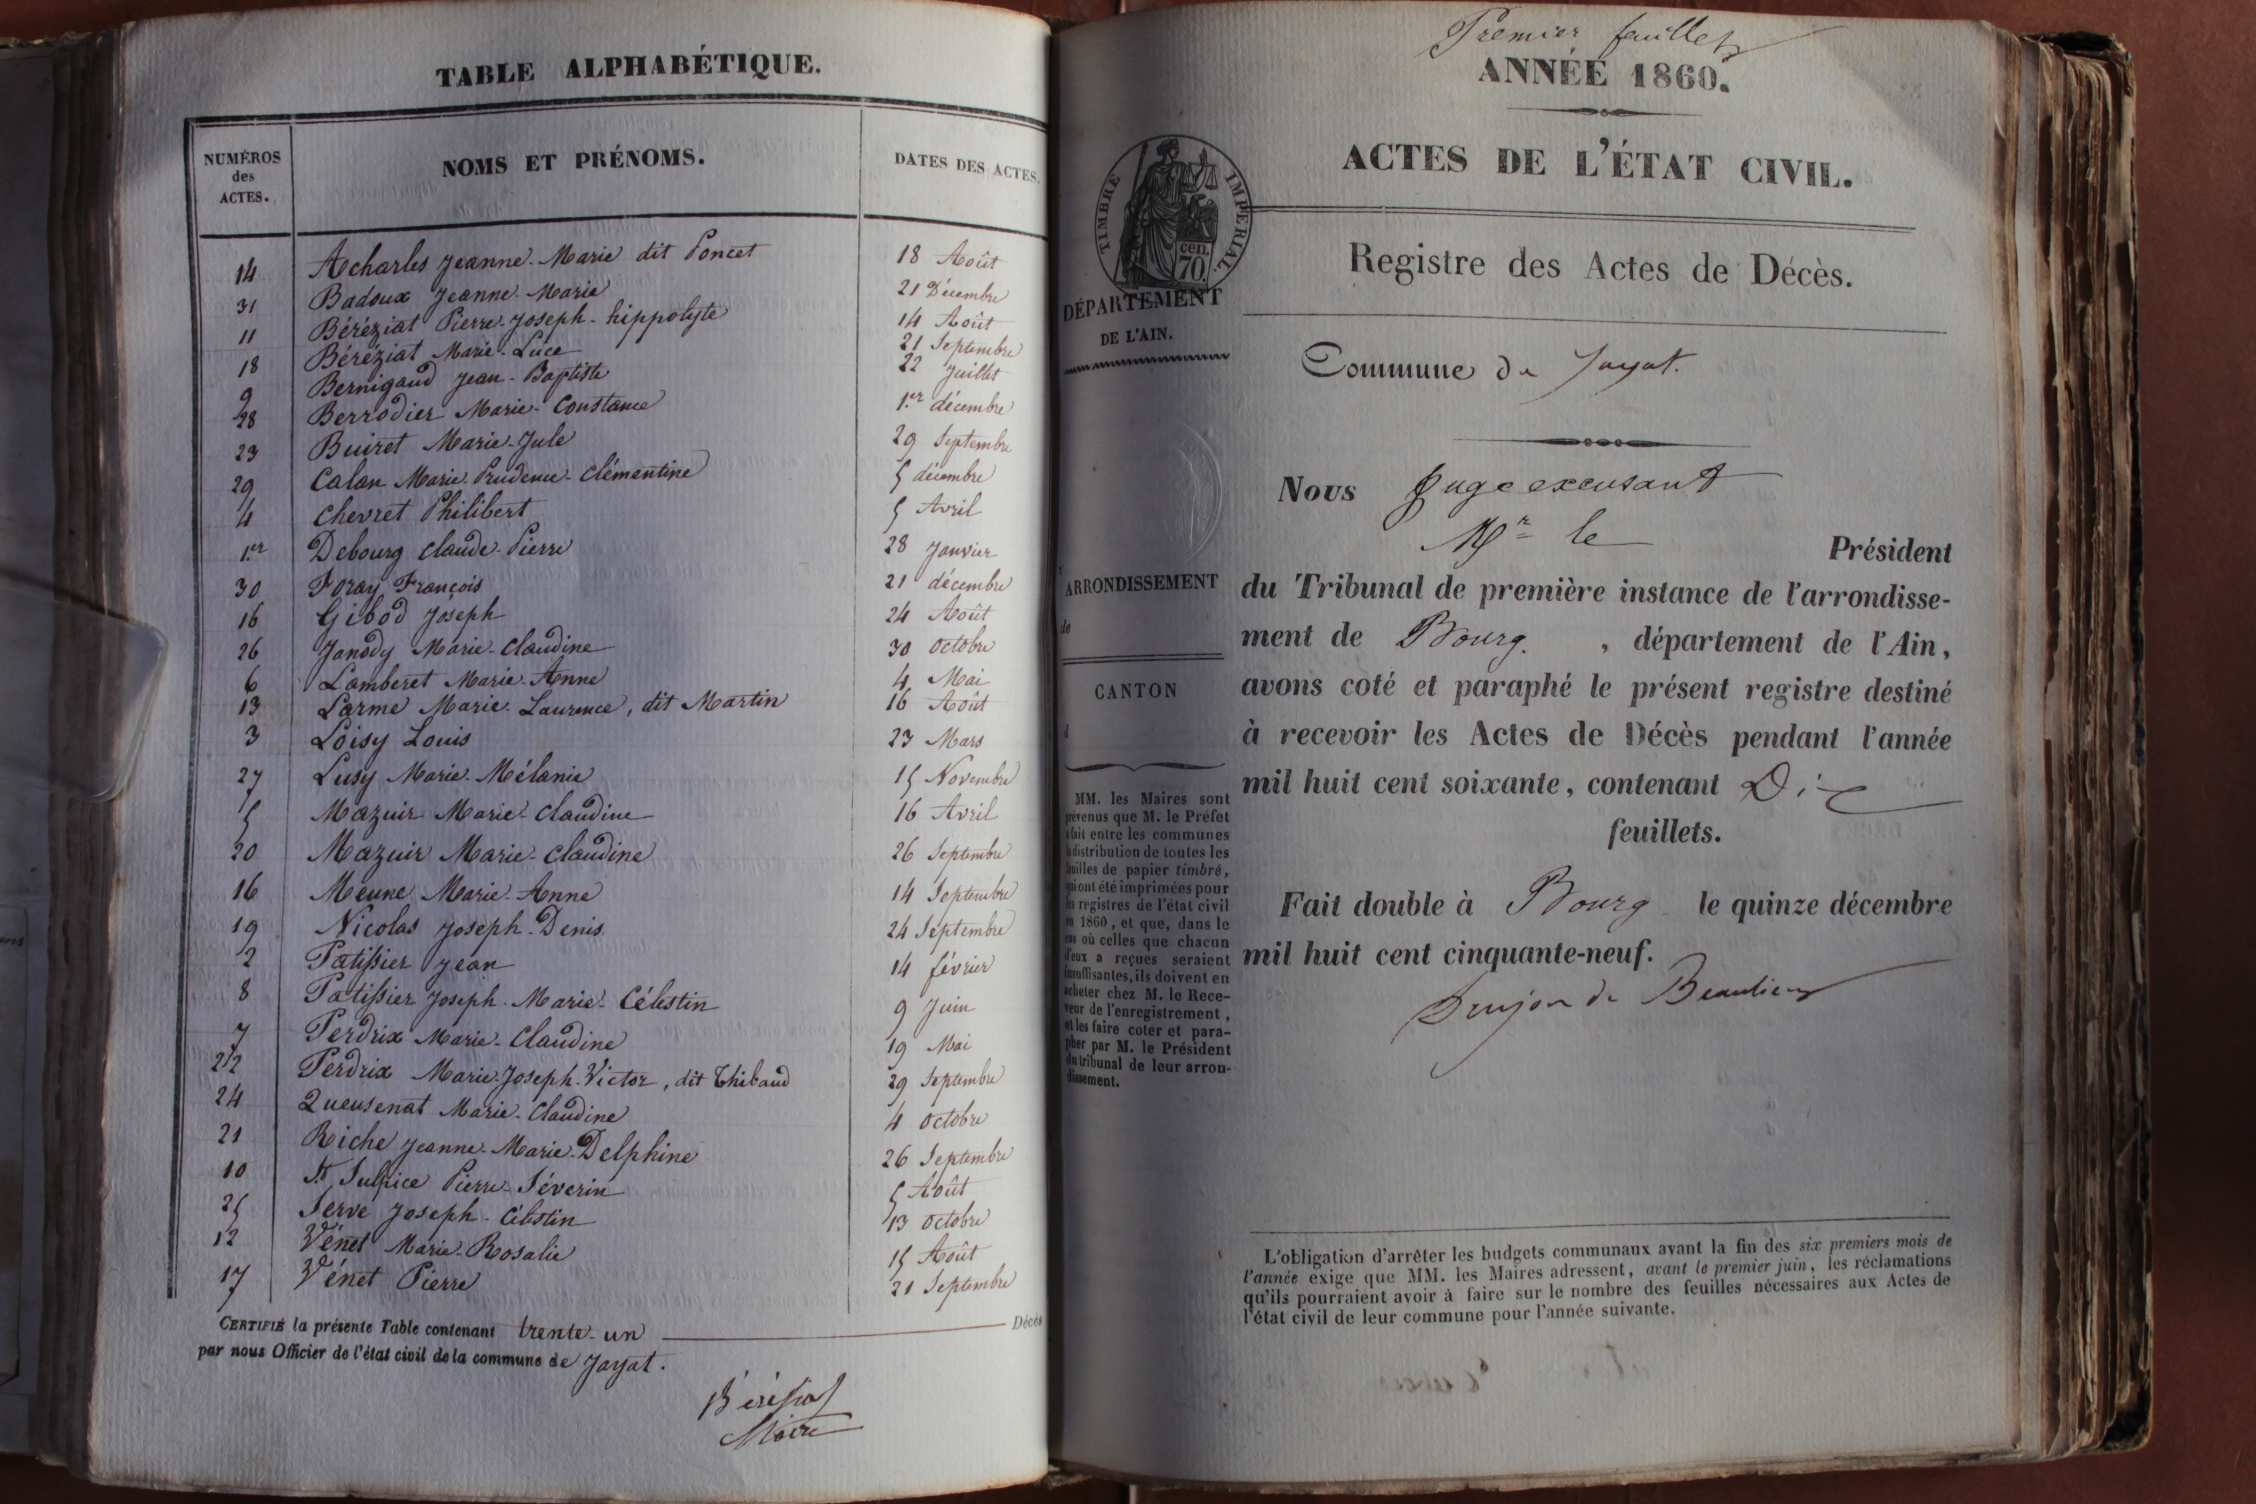 TABLE ALPHABÉTIQUE.
NUMÉROS des ACTES. NOMS ET PRÉNOMS. DATES DES ACTES.
14 Acharles Jeanne-Marie dit Poncet 18 Août
31 Badoux Jeanne-Marie 21 Décembre
11 Béréziat Pierre-Joseph-hippolyte 14 Août
18 Béréziat Marie-Luce 21 Septembre
9 Bernigaud Jean-Baptiste 22 Juillet
28 Berrodier Marie-Constance 1.er décembre
23 Buiret Marie-Jule 29 Septembre
29 Calan Marie-Prudence-Clémentine 5 décembre
4 Chevret Philibert 5 Avril
1.er Debourg Claude-Pierre 28 Janvier
30 Foray François 21 décembre
16 Gibod Joseph 24 Août
26 Janody Marie-Claudine 30 Octobre
6 Lamberet Marie-Anne 4 Mai
13 Larme Marie-Laurence, dit Martin 16 Août
3 Loisy Louis 23 Mars
27 Lusy Marie-Mélanie 15 Novembre
5 Mazuir Marie-Claudine 16 Avril
20 Mazuir Marie-Claudine 26 Septembre
16 Meune Marie-Anne 14 Septembre
19 Nicolas Joseph-Denis 24 Septembre
2 Patissier Jean 14 février
8 Patissier Joseph-Marie-Célestin 9 Juin
7 Perdrix Marie-Claudine 19 Mai
22 Perdrix Marie-Joseph-Victor, dit Thibaud 29 Septembre
24 Queusenat Marie-Claudine 4 Octobre
21 Riche Jeanne-Marie-Delphine 26 Septembre
10 St Sulpice Pierre-Séverin 5 Août
25 Serve Joseph-Célestin 13 Octobre
12 Vénet Marie-Rosalie 15 Août
17 Vénet Pierre 21 Septembre
CERTIFIÉ la présente Table contenant trente-un Décès
par nous Officier de l'état civil de la commune de Jayat.
Béréziat
Maire
Premier feuillet
ANNÉE 1860.
ACTES DE L'ÉTAT CIVIL.
TIMBRE IMPÉRIAL.
cen.
70
DÉPARTEMENT
DE L'AIN.
Registre des Actes de Décès.
Commune de Jayat.
Nous Juge excusant
Mr le Président
ARRONDISSEMENT
de
du Tribunal de première instance de l'arrondisse-
ment de Bourg. , département de l'Ain,
CANTON
d
avons coté et paraphé le présent registre destiné
à recevoir les Actes de Décès pendant l'année
mil huit cent soixante, contenant Dix
feuillets.
Fait double à Bourg le quinze décembre
mil huit cent cinquante-neuf.
Drujon de Beaulieu
MM. les Maires sont
prévenus que M. le Préfet
a fait entre les communes
la distribution de toutes les
feuilles de papier timbré,
qui ont été imprimées pour
les registres de l'état civil
en 1860, et que, dans le
cas où celles que chacun
d'eux a reçues seraient
insuffisantes, ils doivent en
acheter chez M. le Rece-
veur de l'enregistrement,
et les faire coter et para-
pher par M. le Président
du tribunal de leur arron-
dissement.
L'obligation d'arrêter les budgets communaux avant la fin des six premiers mois de
l'année exige que MM. les Maires adressent, avant le premier juin, les réclamations
qu'ils pourraient avoir à faire sur le nombre des feuilles nécessaires aux Actes de
l'état civil de leur commune pour l'année suivante.